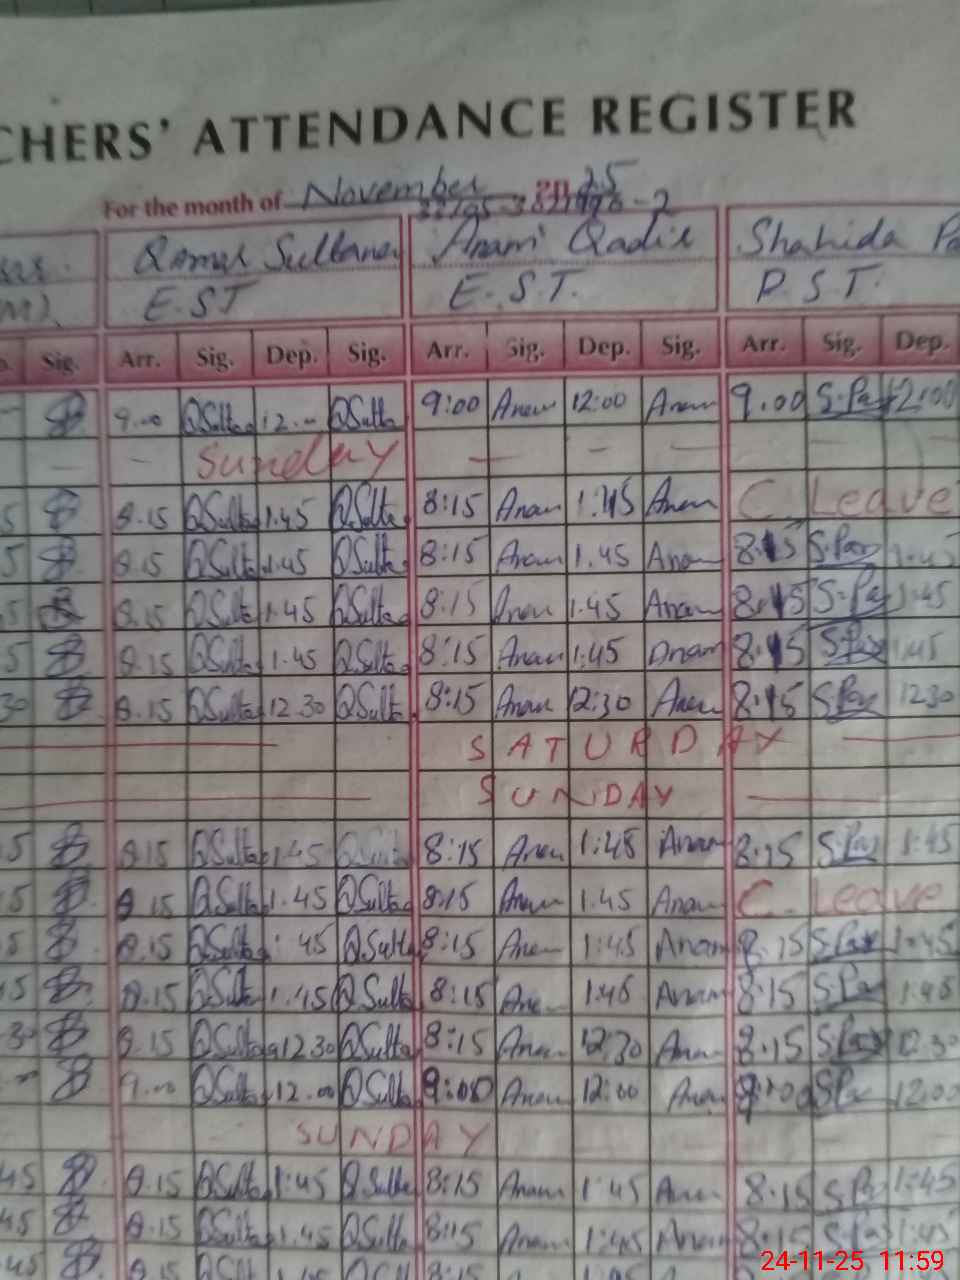 CHERS' ATTENDANCE REGISTER
For the month of November 20 25
Qamar Sultana Anam Qadir Shahida Pa
E.S.T E.S.T. P.S.T.
Sig. Arr. Sig. Dep. Sig. Arr. Sig. Dep. Sig. Arr. Sig. Dep.
9.00 QSulta 12.00 QSulta 9:00 Anam 12:00 Anam 9.00 S.Pa 12:00
— — Sunday — — — — —
5 8.15 QSulta 1.45 QSulta 8:15 Anam 1:45 Anam C. Leave
5 8.15 QSulta 1.45 QSulta 8:15 Anam 1.45 Anam 8.15 S.Pa 1:45
5 8.15 QSulta 1.45 QSulta 8:15 Anam 1.45 Anam 8.15 S.Pa 1:45
5 8.15 QSulta 1.45 QSulta 8:15 Anam 1:45 Anam 8.15 S.Pa 1:45
30 8.15 QSulta 12.30 QSulta 8:15 Anam 12:30 Anam 8.15 S.Pa 12.30
SATURDAY
SUNDAY
5 8.15 QSulta 1.45 8:15 Anam 1:45 Anam 8.15 S.Pa 1:45
5 8.15 QSulta 1.45 QSulta 8:15 Anam 1.45 Anam C. Leave
5 8.15 QSulta 1.45 QSulta 8:15 Anam 1:45 Anam 8.15 S.Pa 1:45
45 8.15 QSulta 1.45 QSulta 8:15 Anam 1:45 Anam 8.15 S.Pa 1:45
30 8.15 QSulta 12.30 QSulta 8:15 Anam 12:30 Anam 8.15 S.Pa 12.30
9.00 QSulta 12.00 QSulta 9:00 Anam 12:00 Anam 9:00 S.Pa 12:00
SUNDAY
45 8.15 QSulta 1:45 QSulta 8:15 Anam 1:45 Anam 8.15 S.Pa 1:45
45 8.15 QSulta 1.45 QSulta 8:15 Anam 1:45 Anam 8:15 S.Pa 1:45
45 8.15 8:15
24-11-25 11:59